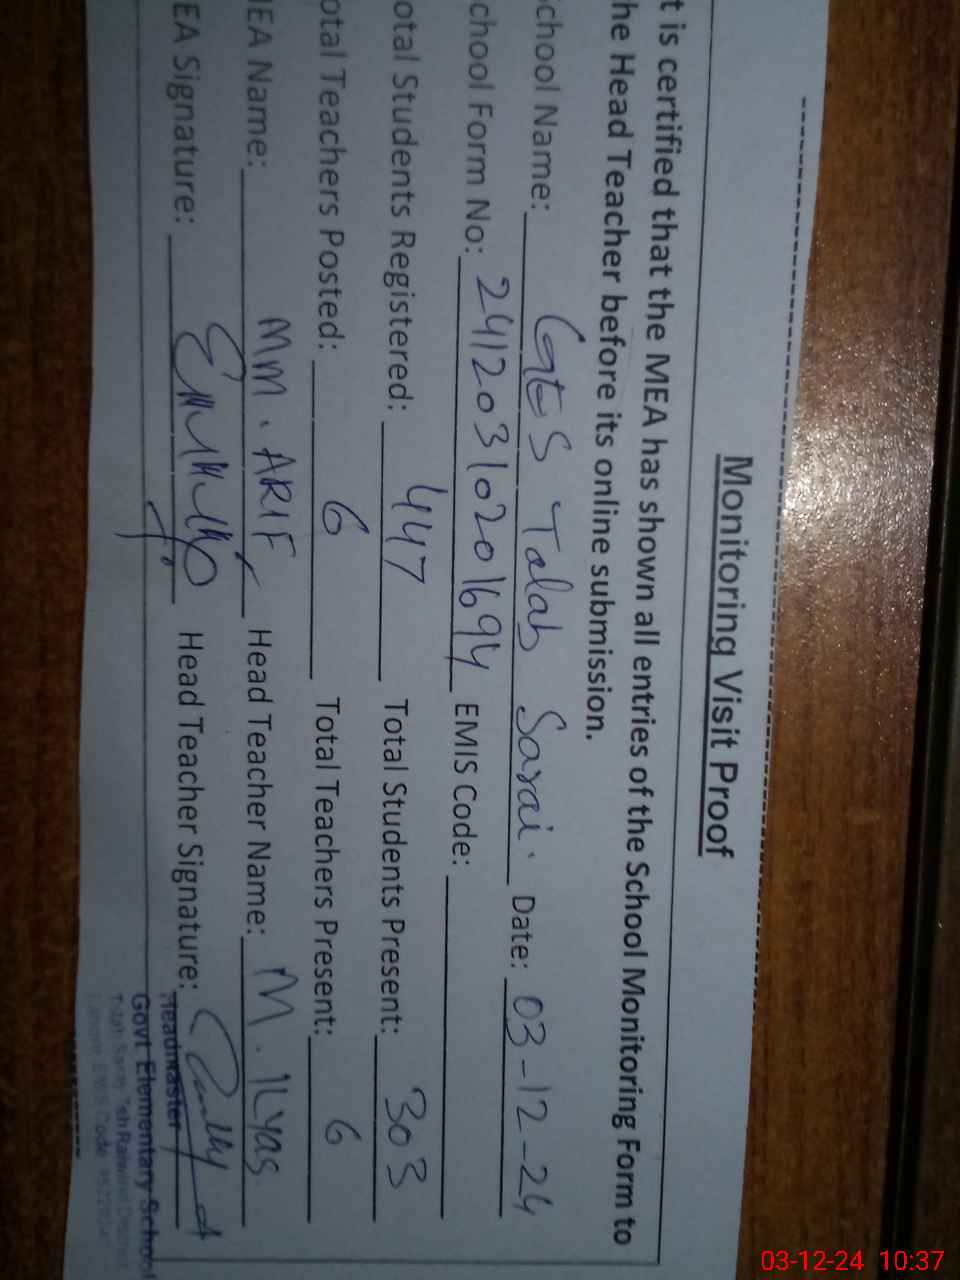 Monitoring Visit Proof
t is certified that the MEA has shown all entries of the School Monitoring Form to
he Head Teacher before its online submission.
chool Name: GES Talab Sarai. Date: 03-12-24
chool Form No: 24120310201694 EMIS Code:
otal Students Registered: 447 Total Students Present: 303
otal Teachers Posted: 6 Total Teachers Present: 6
EA Name: MM. ARIF Head Teacher Name: M. ILyas.
EA Signature: Head Teacher Signature:
Headmaster
Govt Elementary School
Talab Saray Teh Raiwind
EMIS Code
03-12-24 10:37